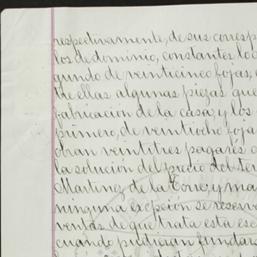 respectivamente, de sus corresp
los de dominio, constantes los
gundo de veinticinco fojas,
tre ellas algunas piezas que
fabricacion de la casa, y los
primero, de veintiocho foja
obran veintitres pagarés
la solucion del precio del ter
Martinez de la Torre, y ma
ninguna excepcion se reserv
ventas de que trata esta esc
cuando pudieran fundars